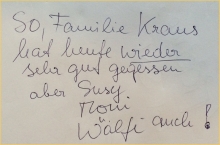 So, Familie Kraus
hat heute wieder
sehr gut gegessen
aber Susy
Moni
Wölfi auch!